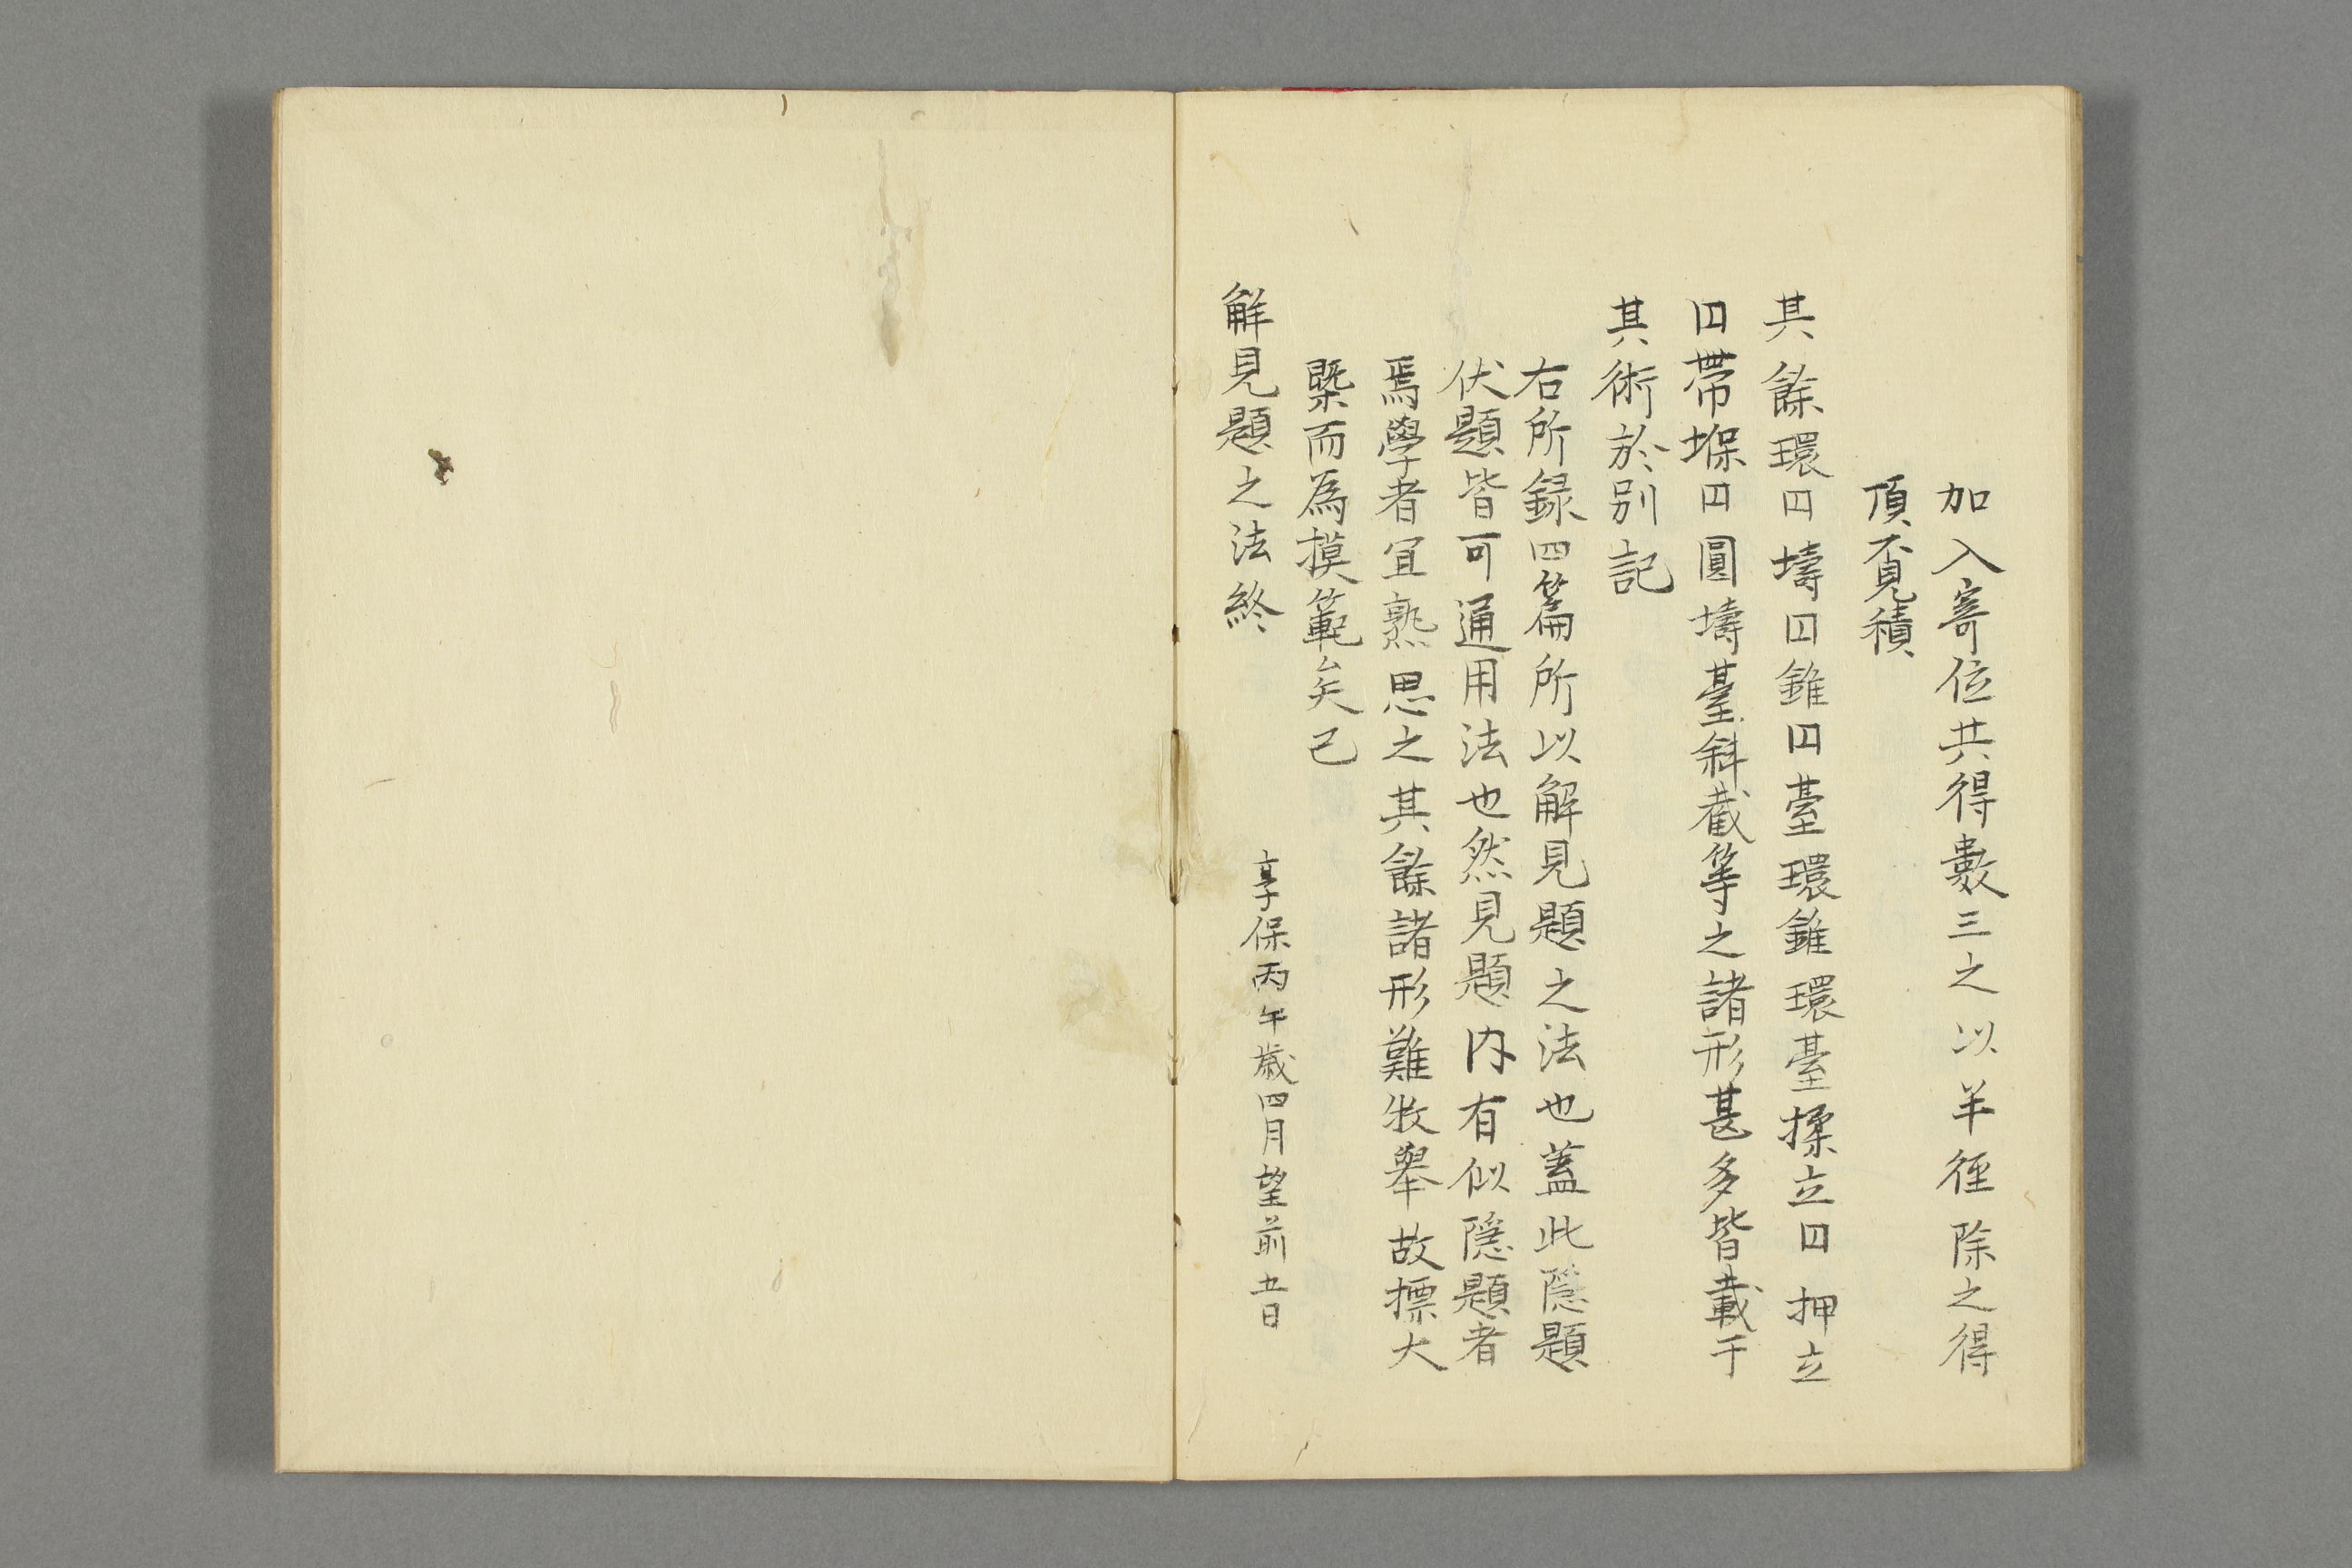 加入寄位共得數三之以半徑除之得
頂覔積
其餘環囗壔囗錐囗臺環錐環臺揉立囗押立
囗帶堢囗圓壔臺斜截等之諸形甚多皆載于
其術於別記
右所録四篇所以解見題之法也蓋此隱題
伏題皆可通用法也然見題内有似隱題者
焉學者宜熟思之其餘諸形難牧舉故摽大
槩而為摸範矣已
解見題之法終
享保丙午歳四月望前五日